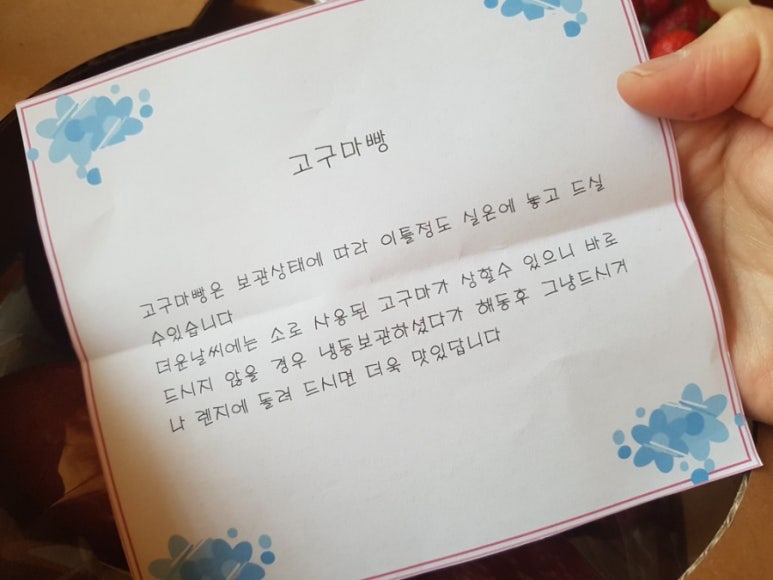 고구마빵
고구마빵은 보관상태에 따라 이틀정도 실온에 놓고 드실
수있습니다
더운날씨에는 소로 사용된 고구마가 상할수 있으니 바로
드시지 않을 경우 냉동보관하셨다가 해동후 그냥드시거
나 렌지에 돌려 드시면 더욱 맛있답니다